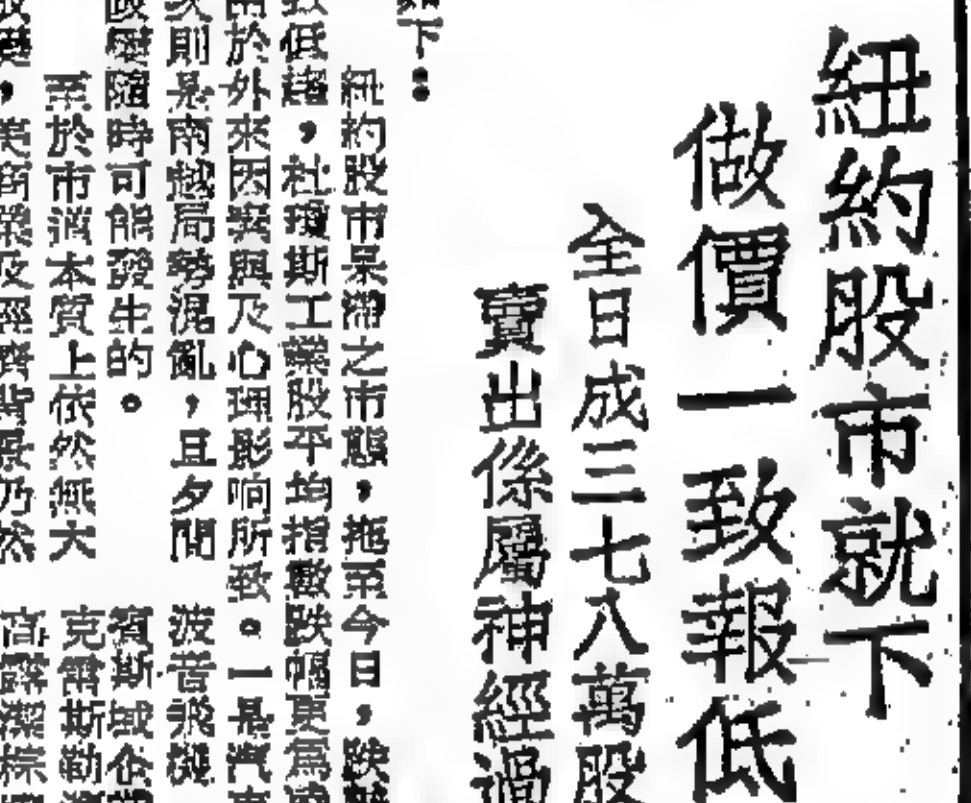 紐約股市就下
做價一致報低
全日成三七八萬股
賣出係屬神經過
如下：
紐約股市呆滯之市態，拖至今日，跌
致低緒，杜瓊斯工業股平均指數跌幅更為
於外來因素與乃心理影响所致。一是汽
則是南越局勢混亂，且夕間
隨時可能發生的。
至於市消本質上依然無大
美商業及經濟背景仍然
波音飛機
賓斯域企業
克爾斯勒
高露潔棕